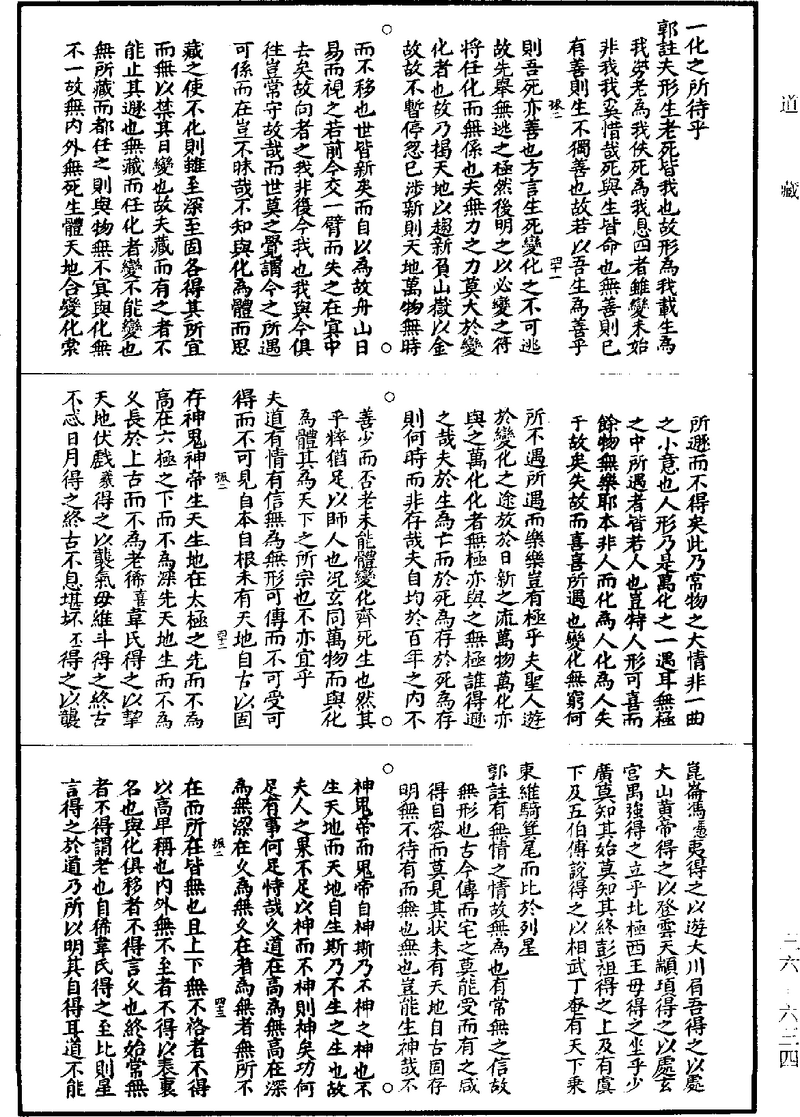 道藏
三六·六三四
一化之所待乎
郭註夫形生老死皆我也故形為我載生為
我勞老為我佚死為我息四者雖變未始
非我我奚惜哉死與生皆命也無善則已
有善則生不獨善也故若以吾生為善乎
則吾死亦善也方言生死變化之不可逃
故先舉無逃之極然後明之以必變之符
將任化而無係也夫無力之力莫大於變
化者也故乃揭天地以趨新負山嶽以舍
故故不暫停忽已涉新則天地萬物無時
而不移也世皆新矣而自以為故舟山日
易而視之若前今交一臂而失之在冥中
去矣故向者之我非復今我也我與今俱
往豈常守故哉而世莫之覺謂今之所遇
可係而在豈不昧哉不知與化為體而思
藏之使不化則雖至深至固各得其所宜
而無以禁其日變也故夫藏而有之者不
能止其遯也無藏而任化者變不能變也
無所藏而都任之則與物無不冥與化無
不一故無內外無死生體天地合變化索
所遯而不得矣此乃常物之大情非一曲
之小意也人形乃是萬化之一遇耳無極
之中所遇者皆若人也豈特人形可喜而
餘物無樂耶本非人而化為人化為人失
于故矣失故而喜喜所遇也變化無窮何
所不遇所遇而樂樂豈有極乎夫聖人遊
於變化之途放於日新之流萬物萬化亦
與之萬化化者無極亦與之無極誰得遯
之哉夫於生為亡而於死為存於死為存
則何時而非存哉夫自均於百年之內不
善少而否老未能體變化齊死生也然其
平粹猶足以師人也況玄同萬物而與化
為體其為天下之所宗也不亦宜乎
夫道有情有信無為無形可傳而不可受可
得而不可見自本自根未有天地自古以固
存神鬼神帝生天生地在太極之先而不為
高在六極之下而不為深先天地生而不為
久長於上古而不為老狶韋氏得之以挈
天地伏戲得之以襲氣母維斗得之終古
不忒日月得之終古不息堪坏得之以襲
崑崙馮夷得之以遊大川肩吾得之以處
大山黄帝得之以登雲天顓頊得之以處玄
宮禺強得之立乎北極西王母得之坐乎少
廣莫知其始莫知其終彭祖得之上及有虞
下及五伯傅說得之以相武丁奄有天下乘
東維騎箕尾而比於列星
郭註有無情之情故無為也有常無之信故
無形也古今傳而宅之莫能受而有之咸
得自容而莫見其狀未有天地自古固存
明無不待有而無也無也豈能生神哉不
神鬼帝而鬼帝自神斯乃不神之神也不
生天地而天地自生斯乃不生之生也故
夫人之果不足以神而不神則神矣功何
足有事何足恃哉久道在高為無高在深
為無深在久為無久在老為無者無所不
在而所在皆無也且上下無不格者不得
以高卑稱也內外無不至者不得以表裏
名也與化俱移者不得言久也終始常無
者不得謂老也自狶韋氏得之至比則星
言得之於道乃所以明其自得耳道不能